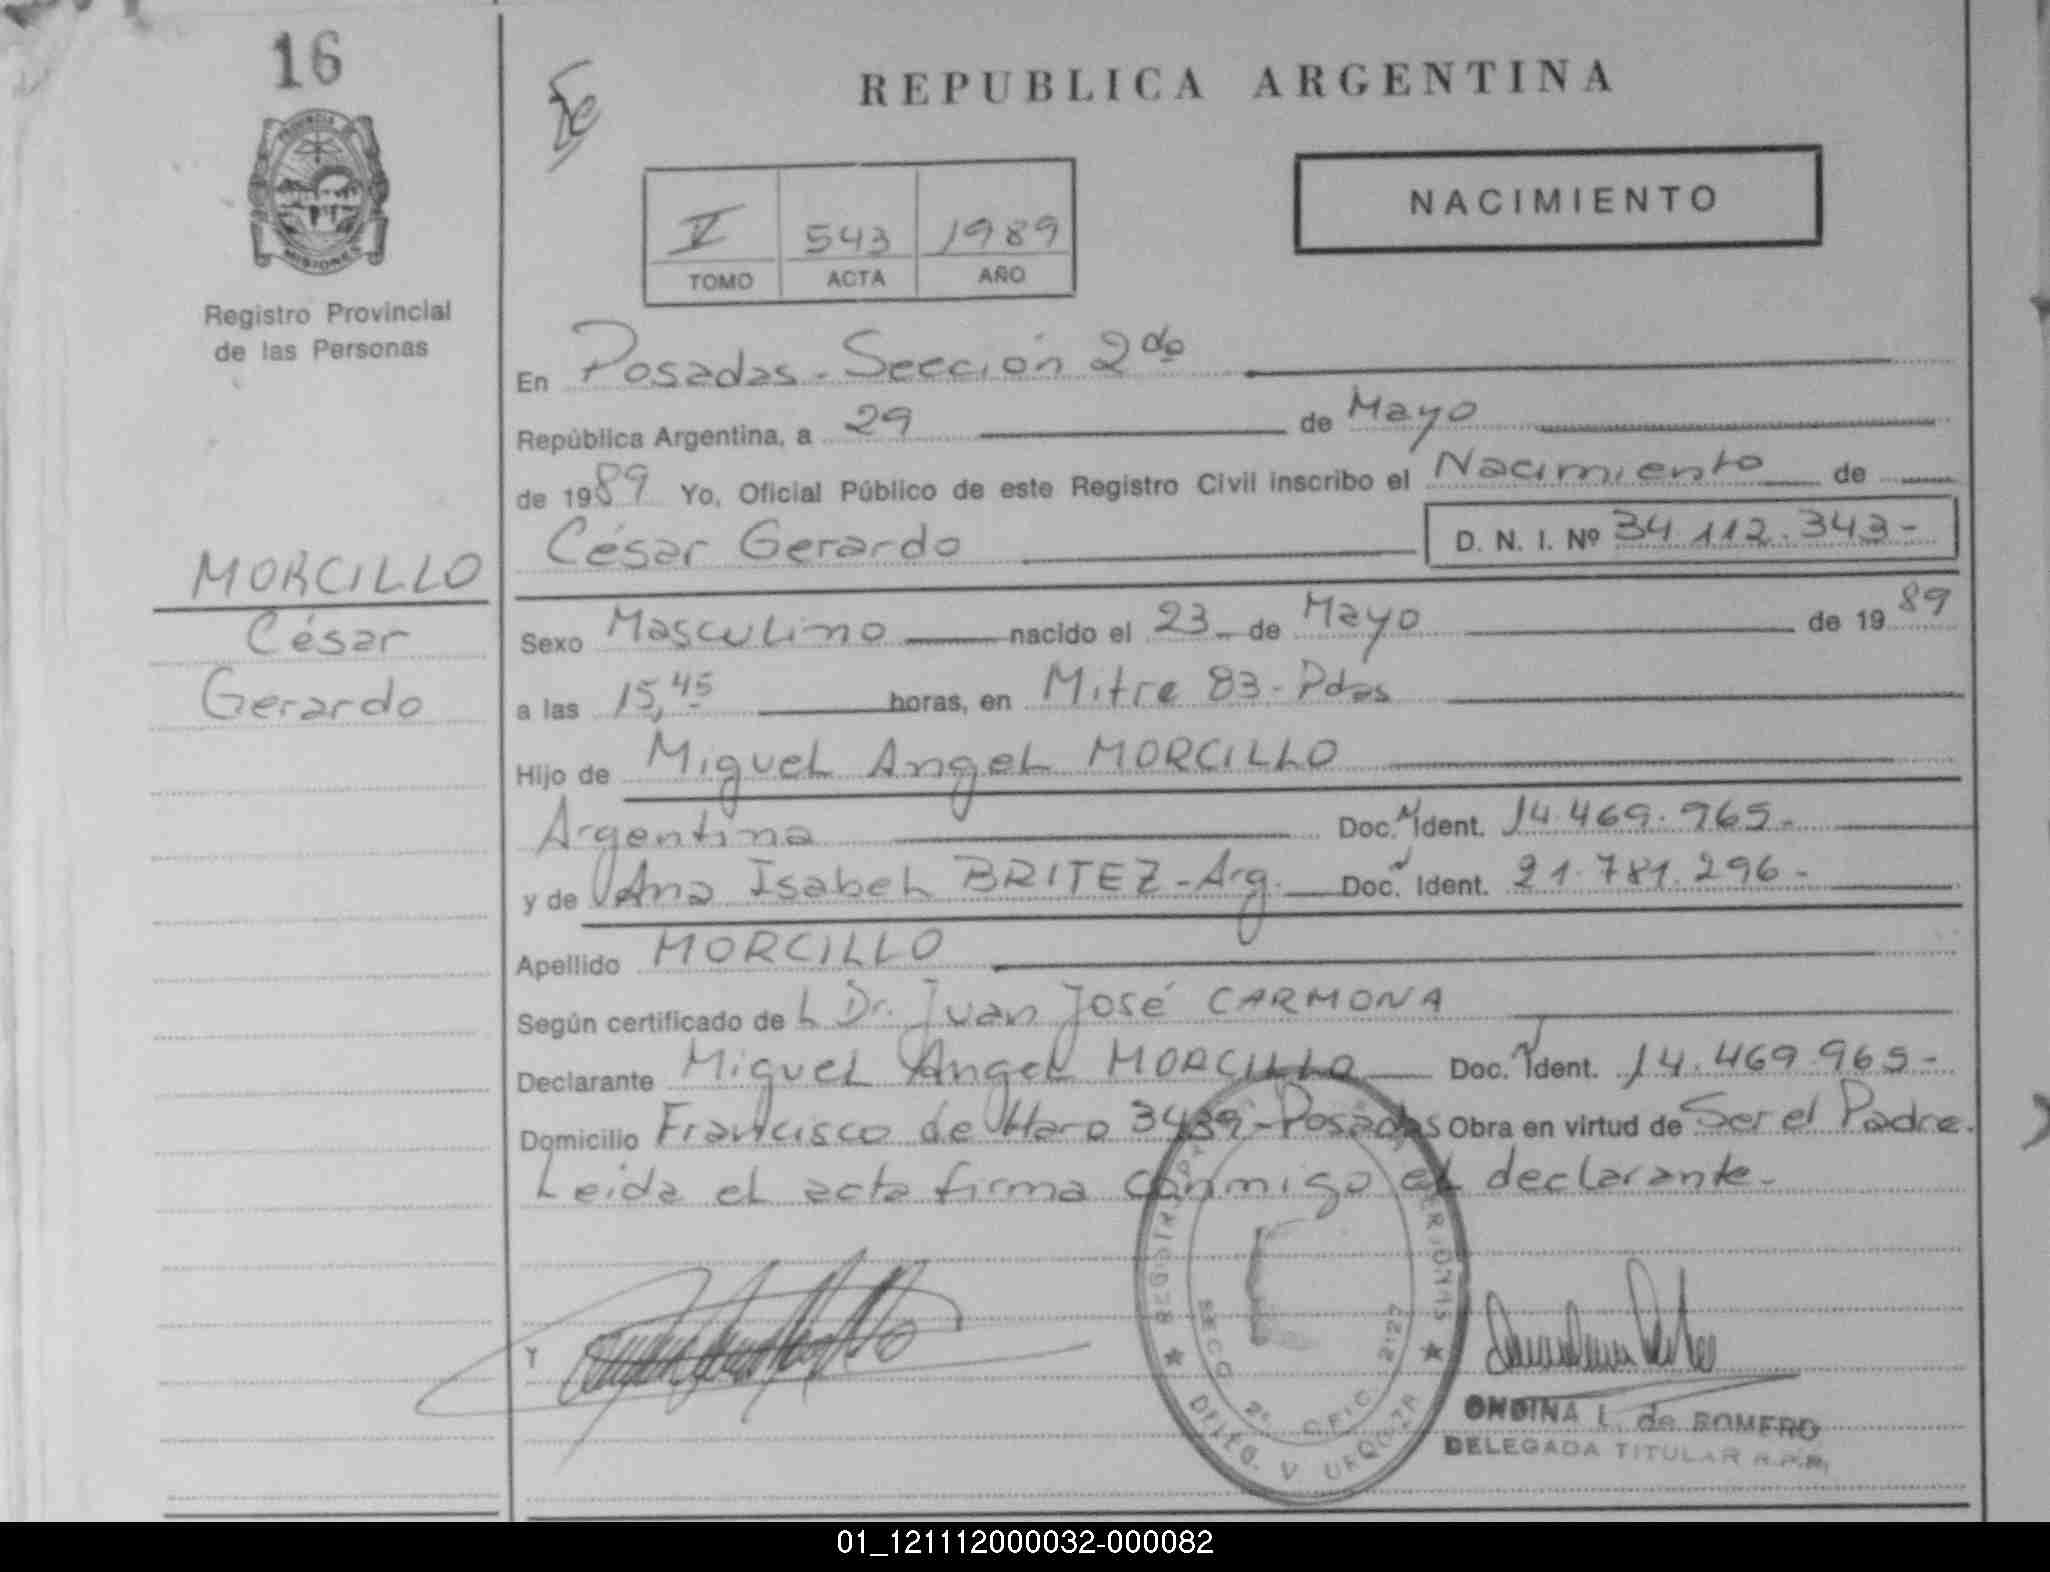 16
PROVINCIA
MISIONES
Registro Provincial
de las Personas
MORCILLO
César
Gerardo
REPUBLICA ARGENTINA
NACIMIENTO
V 543 1989
TOMO ACTA AÑO
En Posadas - Sección 2da
República Argentina, a 29 de Mayo
de 1989 Yo, Oficial Público de este Registro Civil inscribo el Nacimiento de
César Gerardo D. N. I. Nº 34.112.343-
Sexo Masculino nacido el 23 de Mayo de 1989
a las 15,45 horas, en Mitre 83 - Pdas
Hijo de Miguel Angel MORCILLO
Argentina Doc. Ident. 14.469.965-
y de Ana Isabel BRITEZ - Arg. Doc. Ident. 21.781.296-
Apellido MORCILLO
Según certificado del Dr. Juan José CARMONA
Declarante Miguel Angel MORCILLO Doc. Ident. 14.469.965-
Domicilio Francisco de Haro 3439 - Posadas Obra en virtud de Ser el Padre.
Leida el acta firma conmigo el declarante.-
Y
SECC. 2ª OFIC. 2127
DELEG. V. URQUIZA
ONDINA L. de ROMERO
DELEGADA TITULAR R.P.P.
01_121112000032-000082